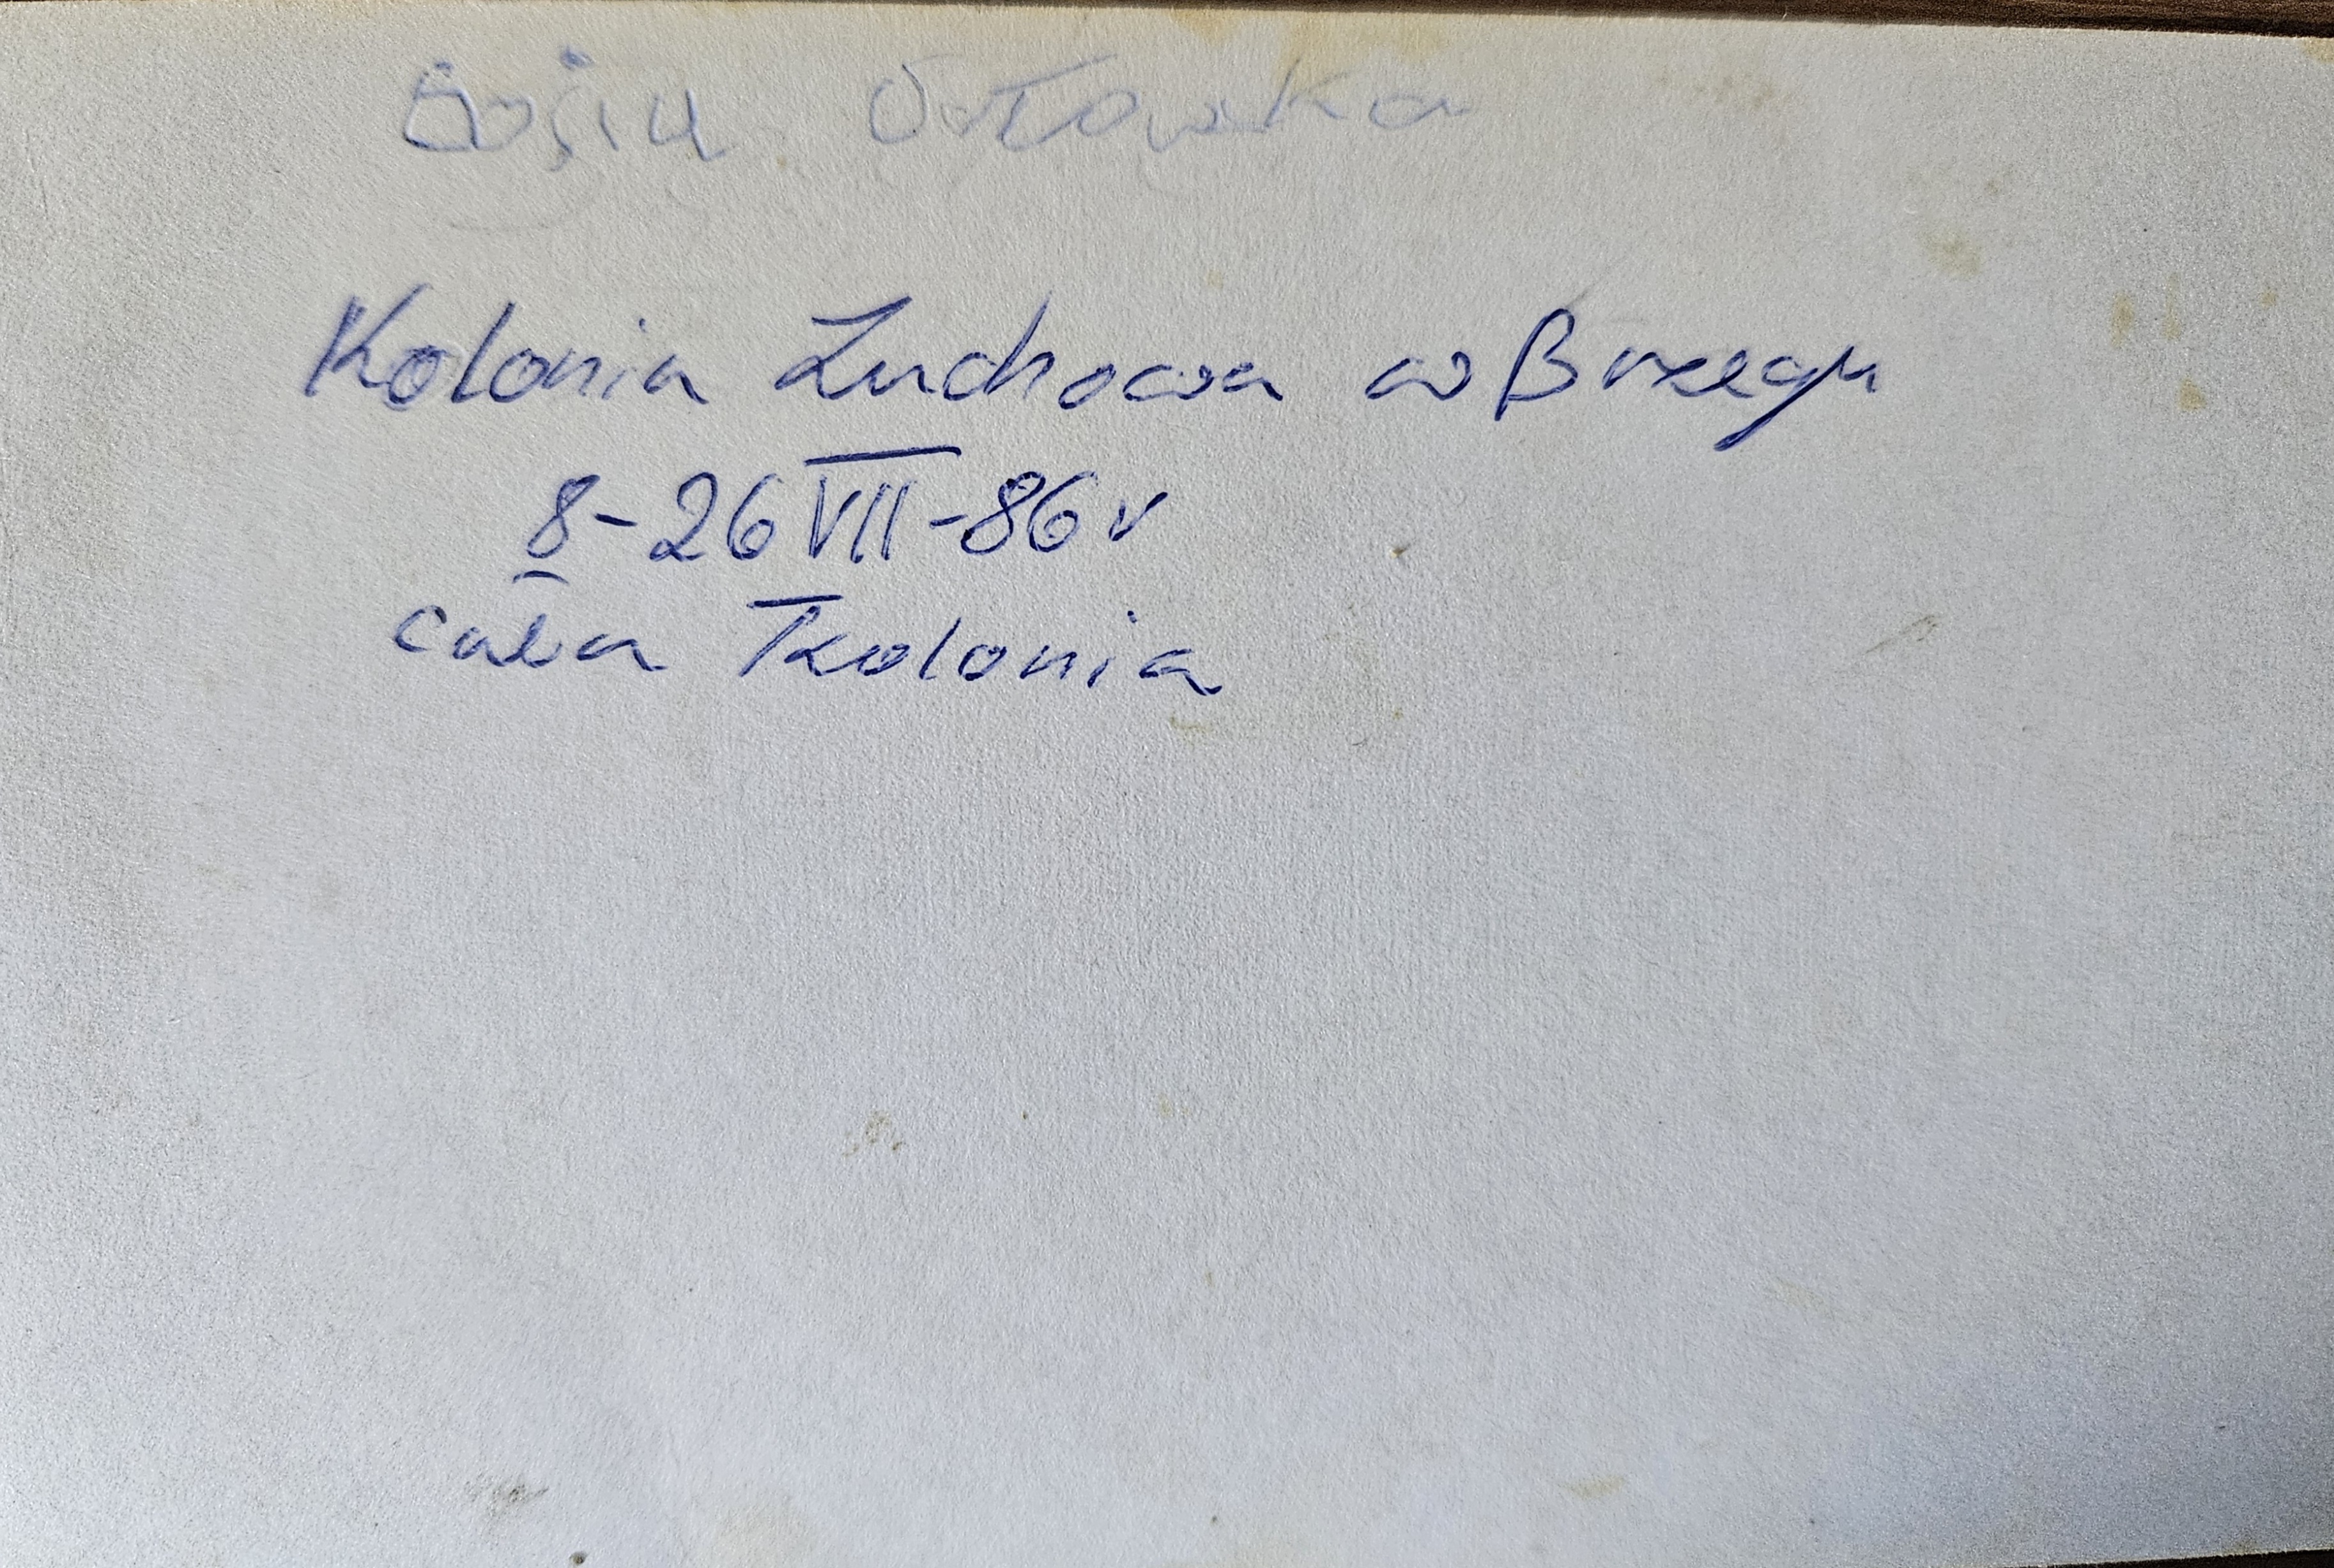 Zosia Orłowska
Kolonia Zuchowa w Brzegu
8-26 VII-86 r
cała kolonia